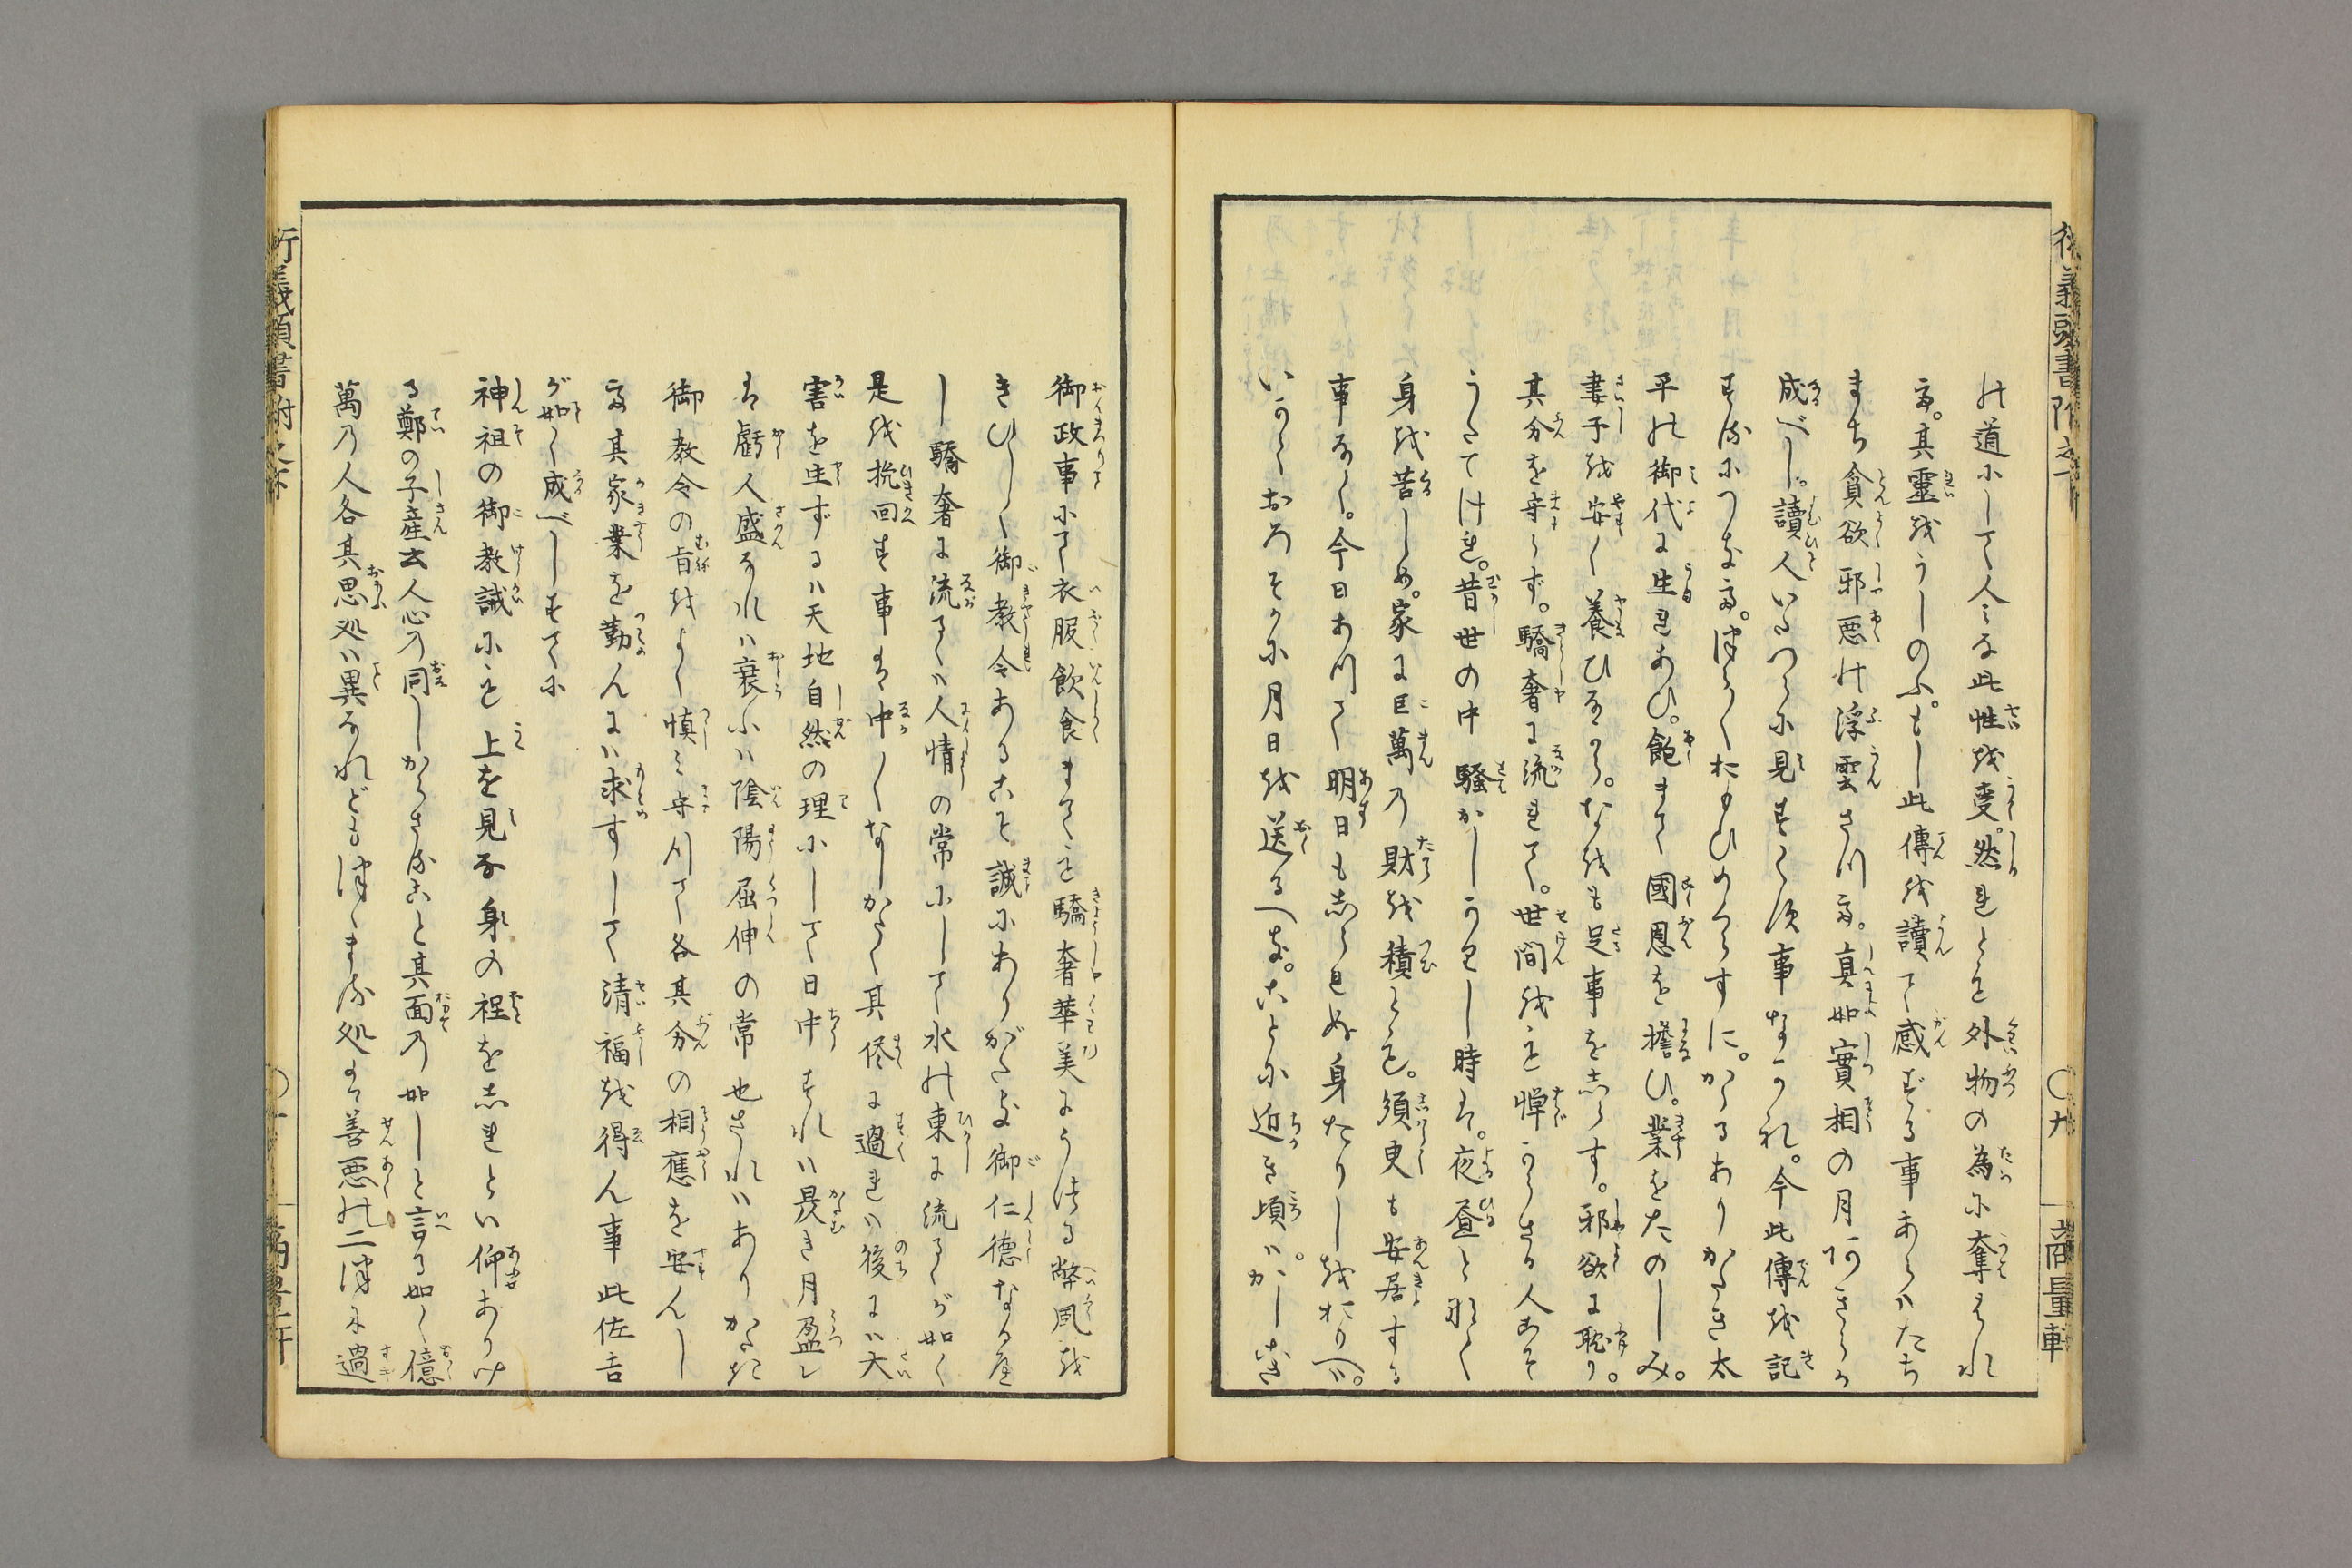 の道にして人みな此性を受。然れども外物の為に奪はれ
て。其霊をうしのふ。もし此傳を讀て感ずる事あらバたち
まち貪欲邪悪の浮雲さりて。真如實相の月あきらか
成べし。讀人いたづらに見すぐす事なかれ。今此傳を記
するにつけて。つら〱おもひめぐらすに。かゝるありがたき太
平の御代に生れあひ。飽まで國恩を擔ひ。業をたのしみ。
妻子を安く養ひながら。なをも足事をしらす。邪欲に耽り。
其分を守らず。驕奢に流れて。世間をも憚からざる人こそ
うたてけれ。昔世の中騒がしかりし時は。夜昼となく
身を苦しめ。家に巨萬の財を積とも。須臾も安居する
事なく。今日ありて明日もしられぬ身なりしをおもへバ。
いかでおろそかに月日を送るべき。ことに近き頃ハ。かしこき
御政事にて衣服飲食まても驕奢華美にうつる弊風を
きびしく御教令あることは誠にありがたき御仁徳なる哉
し驕奢に流るゝハ人情の常にして水の東に流るゝが如く
是を挽回す事は中〱なしがたく其侭に過れハ後にハ大
害を生ずるハ天地自然の理にして日中すれハ昃き月盈レ
は虧人盛なれハ衰ふハ陰陽屈伸の常也されハありがたき
御教令の旨をよく慎ミ守りて各其分の相應を安んし
て其家業を勤んにハ求すして清福を得ん事此佐吉
が如く成べしすでに
神祖の御教誡にも上を見な身の程をしれとハ仰ありけ
る鄭の子産云人心の同しからさること其面の如しと言る如く億
萬の人各其思処ハ異なれどもつゝまる処は善悪の二つに過
行義頭書附之下
〇九
商量軒
行義頭書附之下
〇十
商量軒